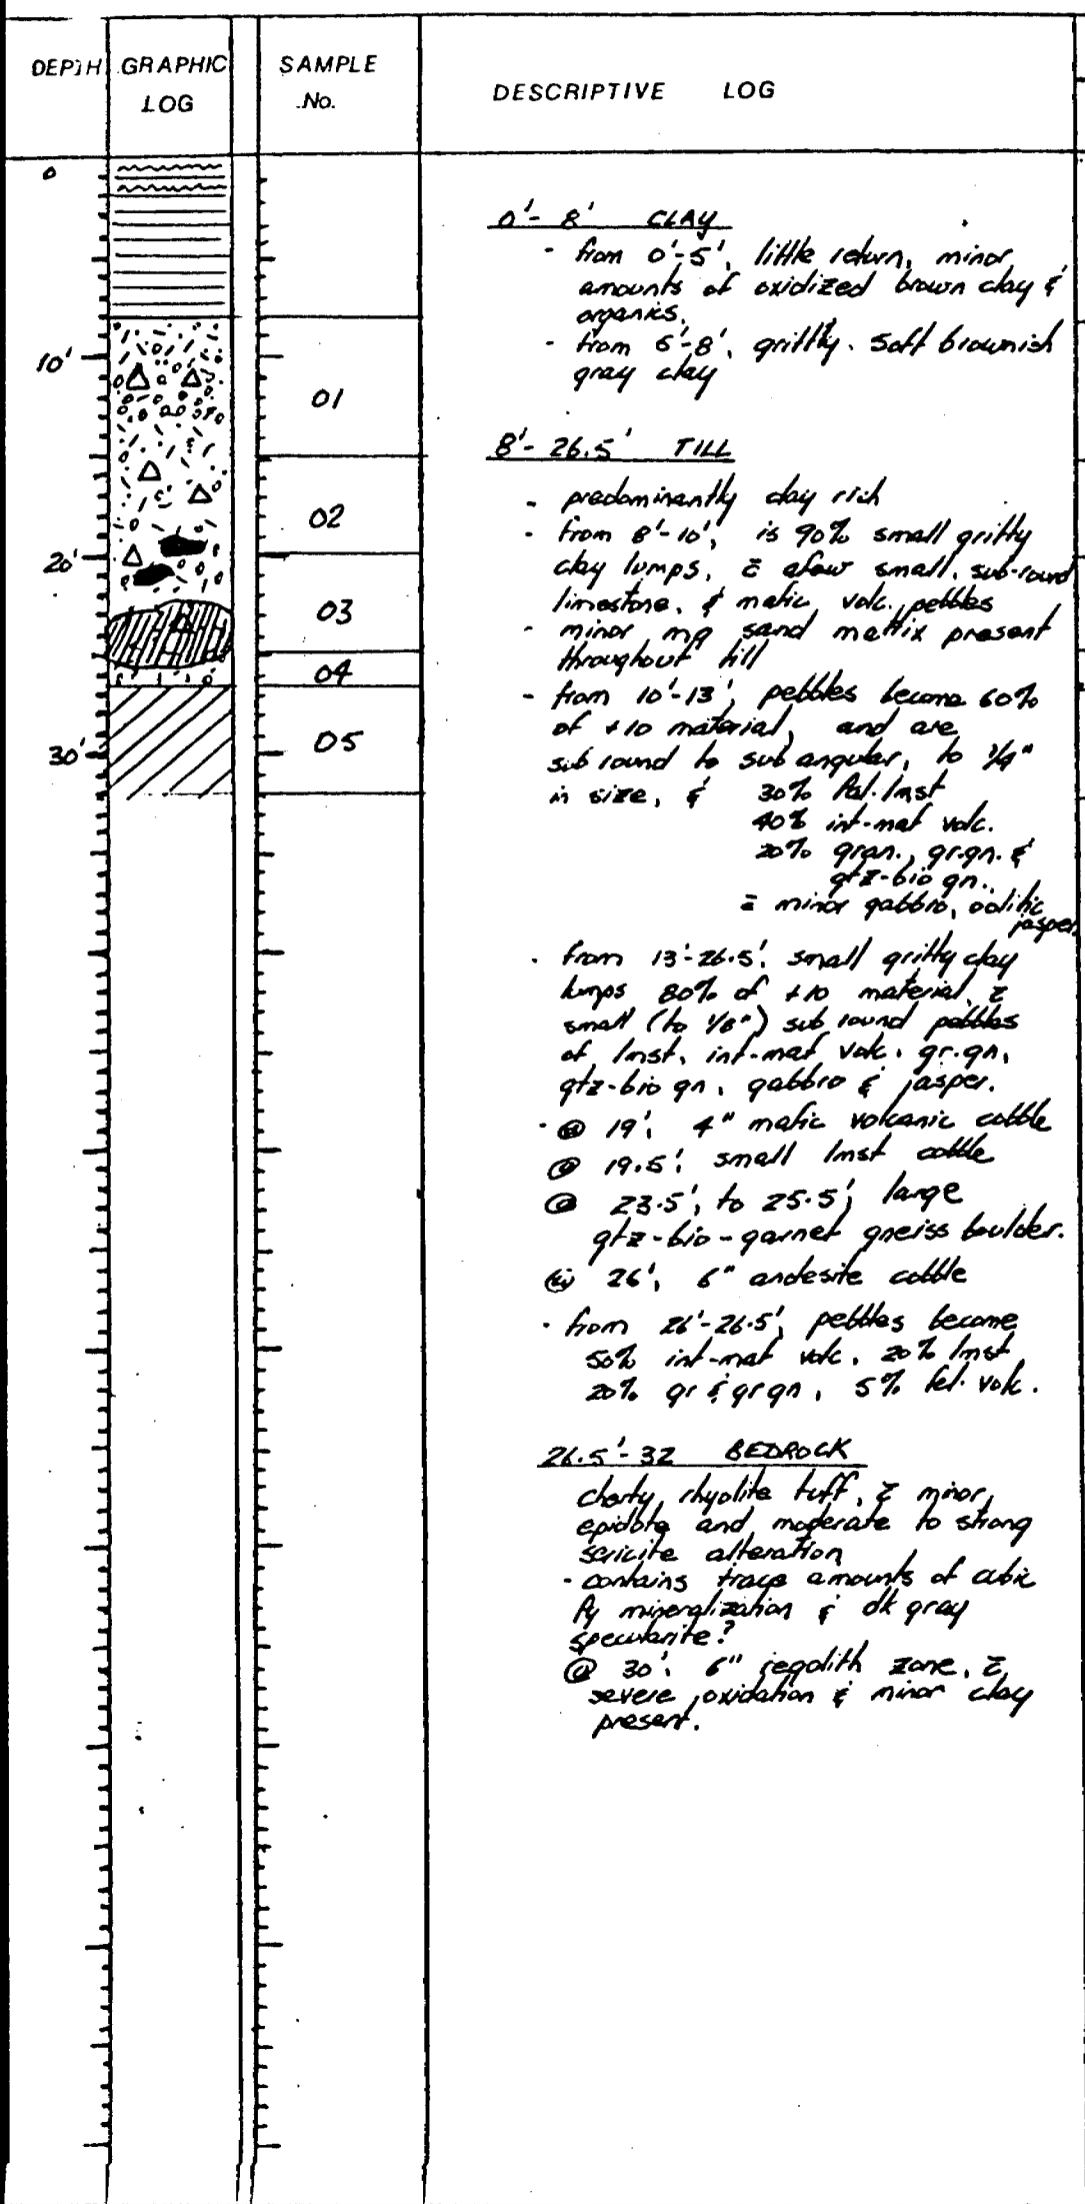 DEPTH GRAPHIC LOG SAMPLE No. DESCRIPTIVE LOG
0
10'
20'
30'
01
02
03
04
05
0'- 8' CLAY
- from 0'-5', little return, minor
amounts of oxidized brown clay &
organics.
- from 5'-8', gritty. Soft brownish
gray clay
8'- 26.5' TILL
- predominantly clay rich
- from 8'-10', is 90% small gritty
clay lumps, c̄ afew small, sub-round
limestone, & mafic volc. pebbles
- minor mg sand matrix present
throughout till
- from 10'-13', pebbles become 60%
of +10 material, and are
sub round to sub angular, to 1/4"
in size, & 30% Pal. lmst
40% int-maf volc.
20% gran., gr.gn. &
qtz-bio gn.
c̄ minor gabbro, oolitic
jasper.
- from 13'-26.5', small gritty clay
lumps 80% of +10 material, c̄
small (to 1/8") sub round pebbles
of lmst, int-maf volc. gr.gn,
qtz-bio gn, gabbro & jasper.
- @ 19', 4" mafic volcanic cobble
@ 19.5', small lmst cobble
@ 23.5', to 25.5', large
qtz-bio-garnet gneiss boulder.
@ 26', 6" andesite cobble
- from 26'-26.5', pebbles become
50% int-maf volc. 20% lmst
20% gr & gr gn, 5% fel. volc.
26.5'- 32 BEDROCK
cherty, rhyolite tuff, c̄ minor
epidote and moderate to strong
sericite alteration
- contains trace amounts of cubic
Py mineralization & dk gray
specularite?
@ 30', 6" regolith zone, c̄
severe oxidation & minor clay
present.